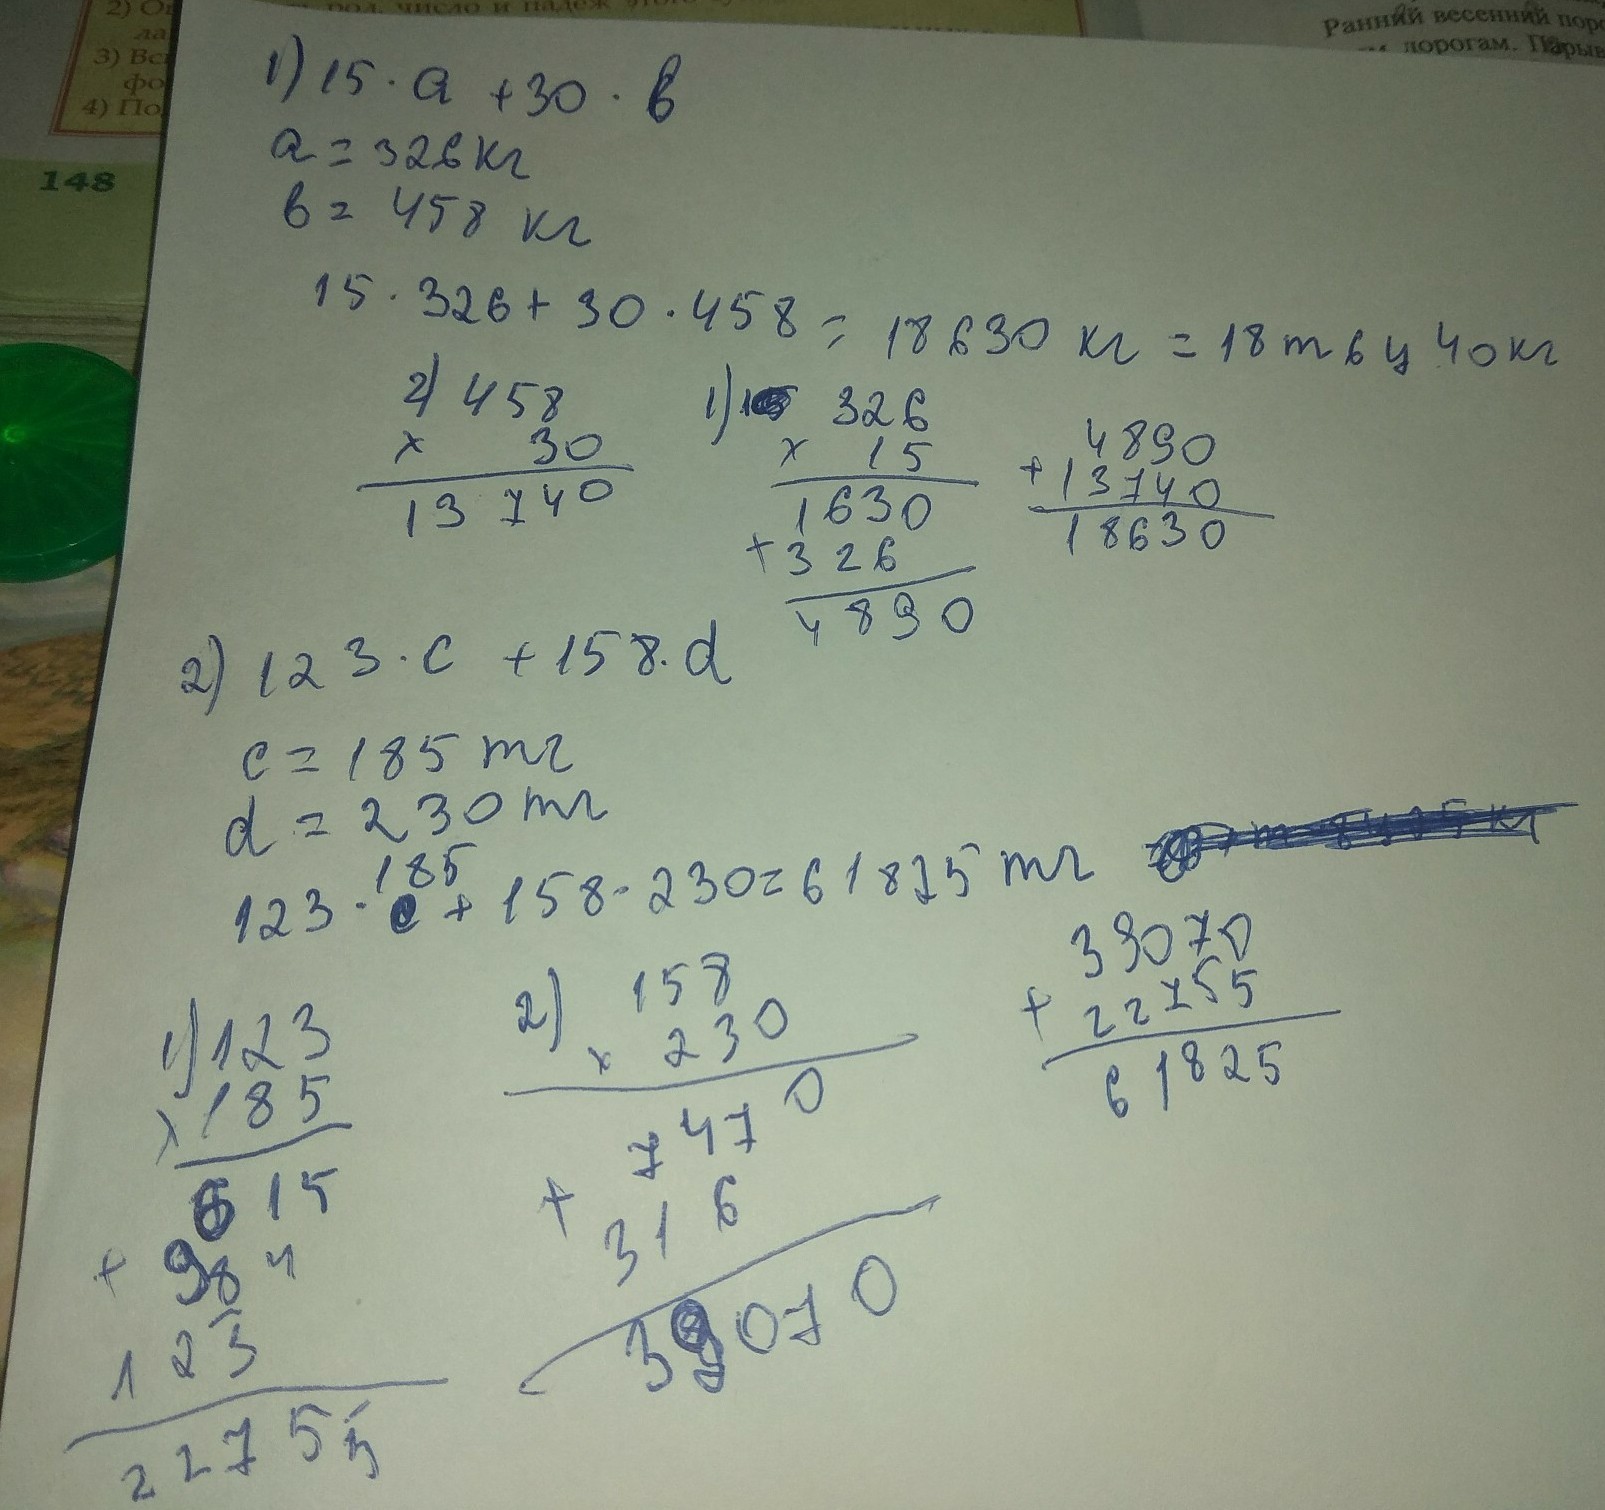 2) О
род, число и падеж этого
ла
3) Вс
фо
4) По
148
Ранний весенний пор
дорогам. Порыв
1) 15 · a + 30 · b
a = 326 кг
b = 458 кг
15 · 326 + 30 · 458 = 18630 кг = 18 т 6 ц 40 кг
2) 458
× 30
13740
1) 326
× 15
1630
+ 326
4890
4890
+ 13740
18630
2) 123 · c + 158 · d
c = 185 тг
d = 230 тг
185
123 · c + 158 · 230 = 61825 тг
1) 123
× 185
615
+ 984
123
22755
2) 158
× 230
7470
+ 316
39070
39070
+ 22755
61825